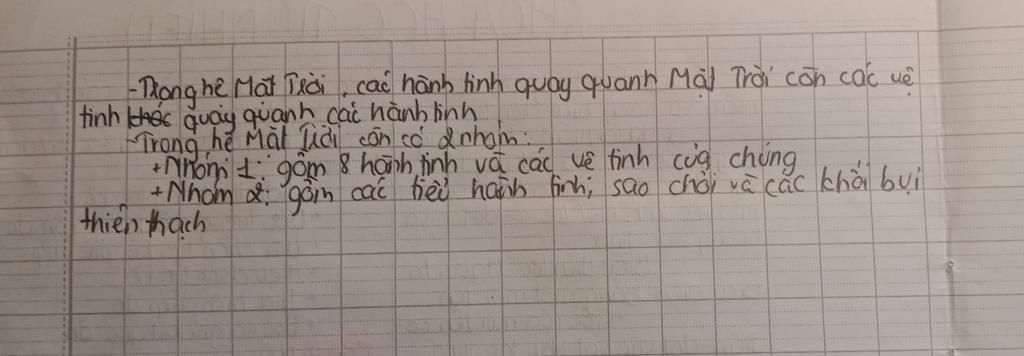 -Trong hệ Mặt Trời, các hành tinh quay quanh Mặt Trời còn các vệ
tinh khác quay quanh các hành tinh
-Trong hệ Mặt Trời còn có 2 nhóm:
+Nhóm 1: gồm 8 hành tinh và các vệ tinh của chúng
+Nhóm 2: gồm các tiểu hành tinh, sao chổi và các khối bụi
thiên thạch